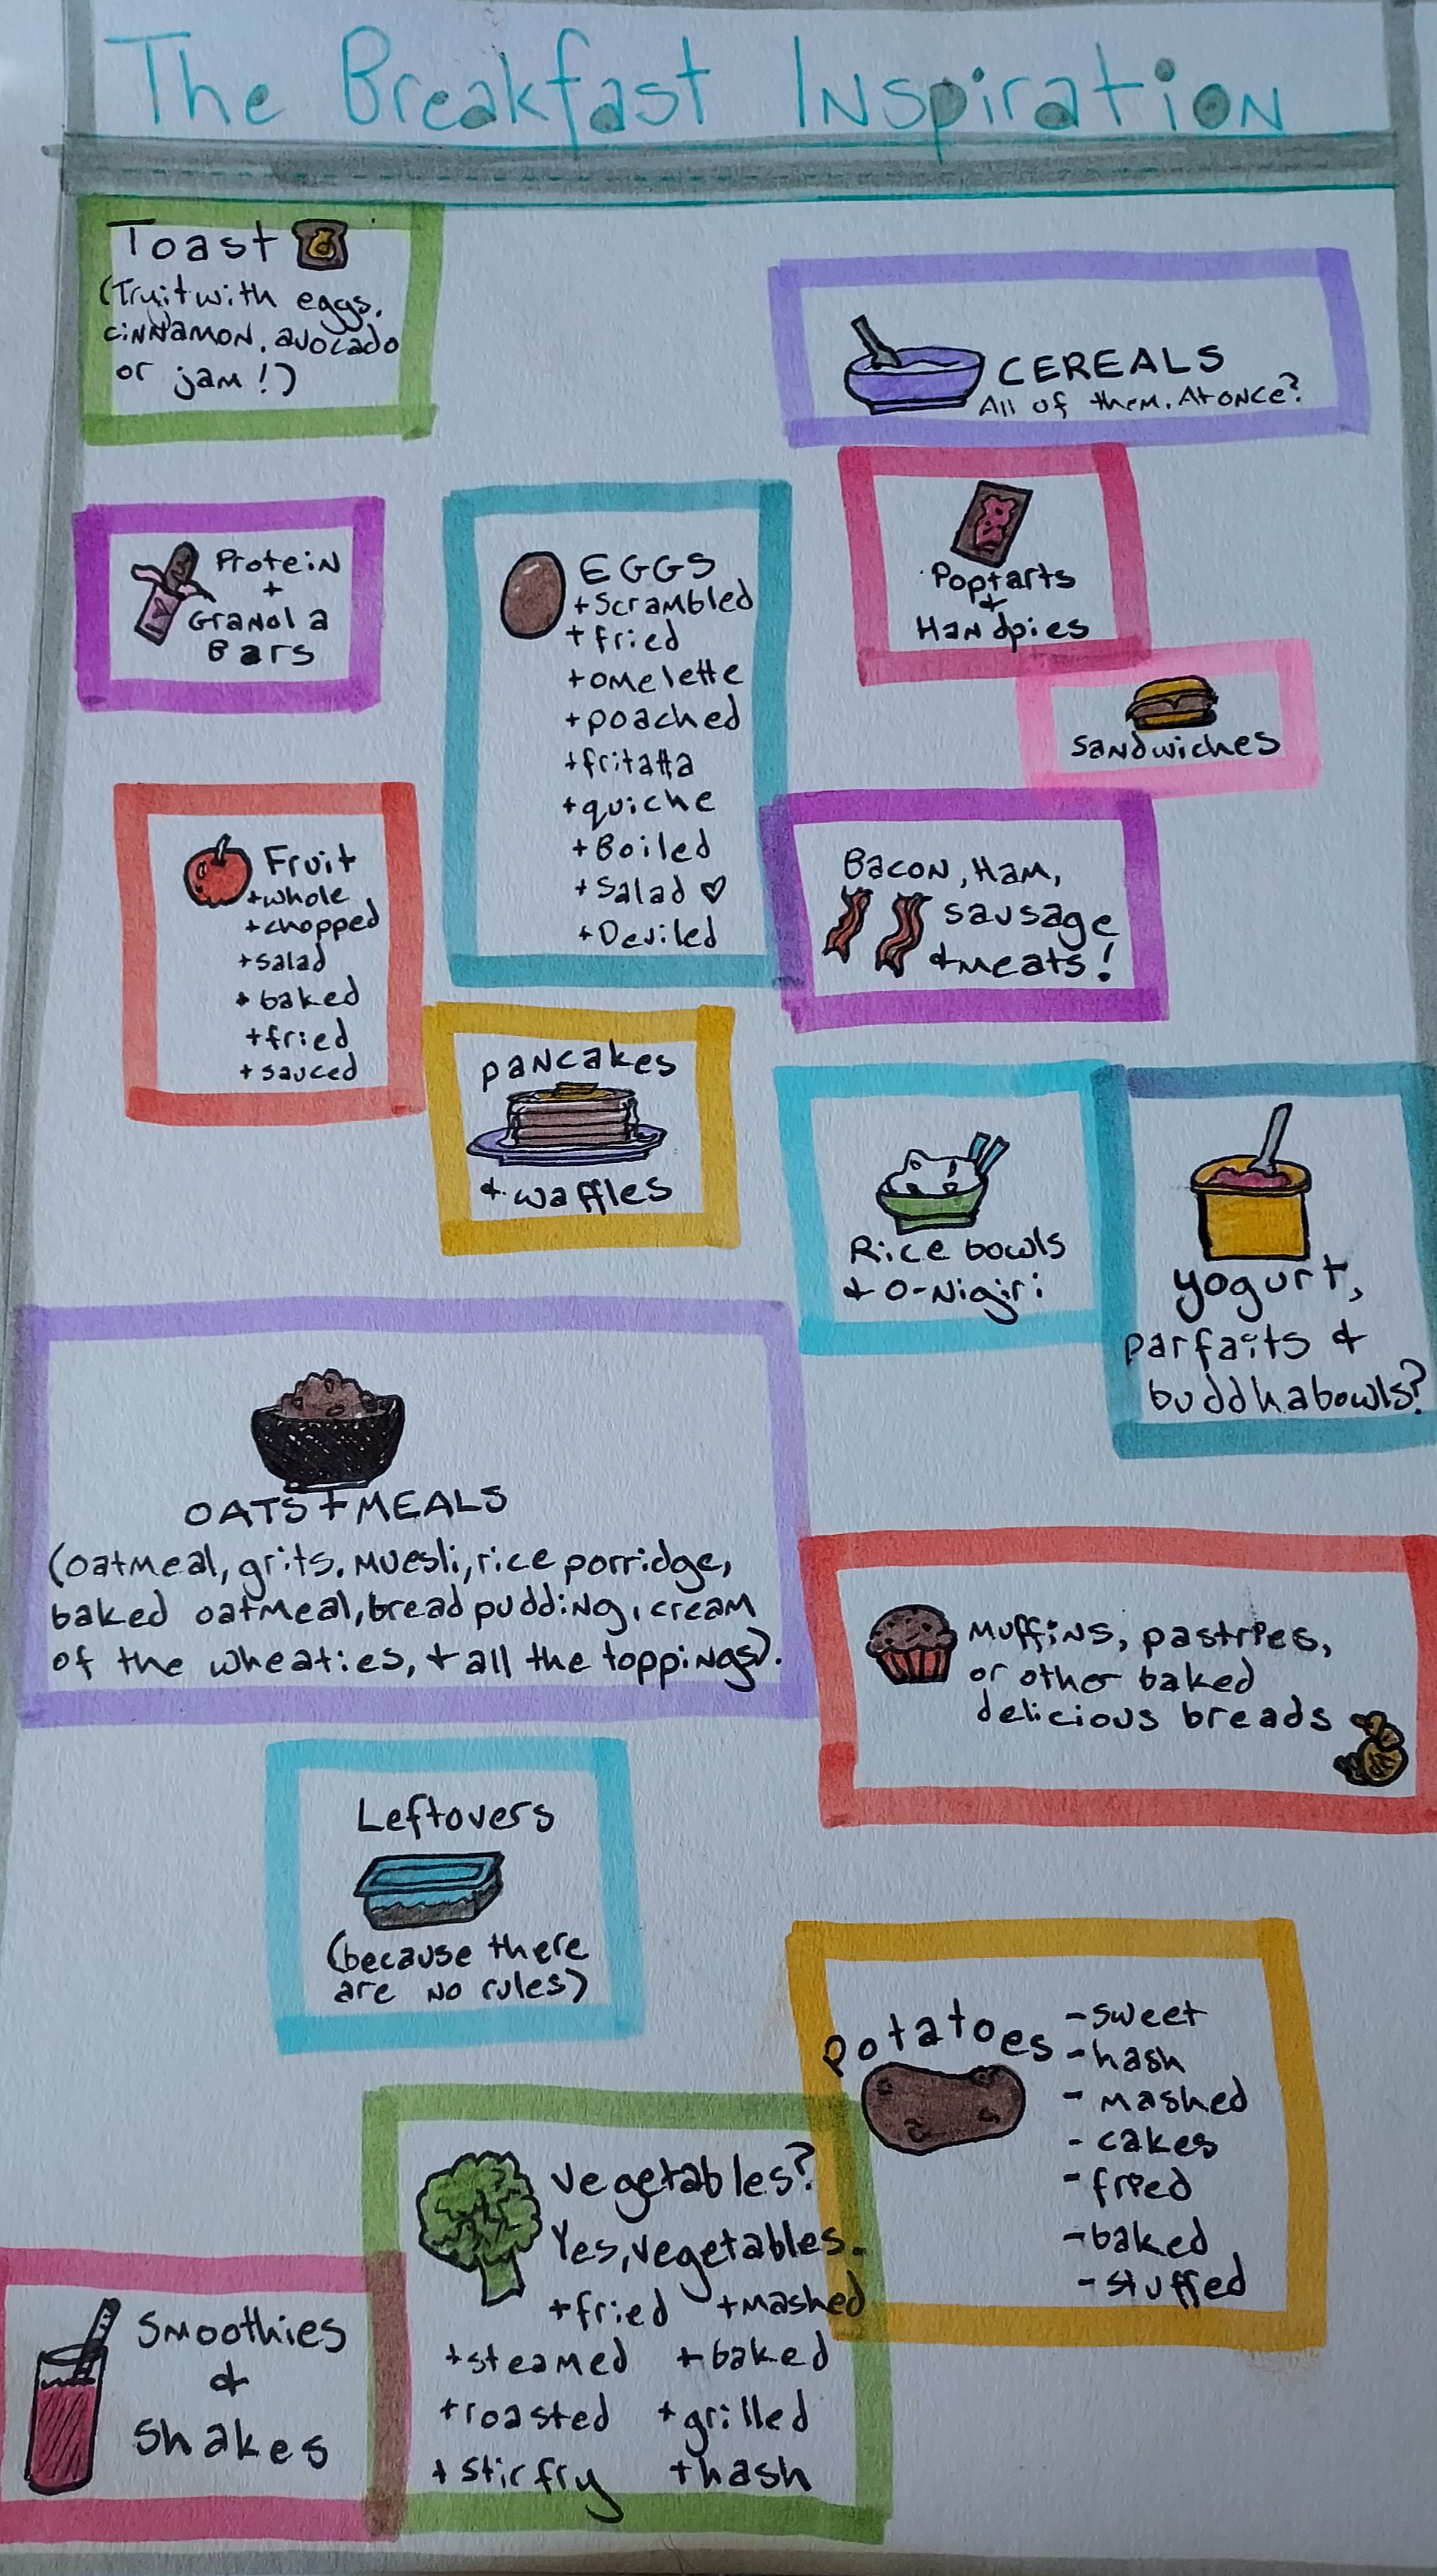 The Breakfast Inspiration
Toast
(Try it with eggs,
cinnamon, avocado
or jam!)
CEREALS
All of them. At once?
Protein
+
Granola
Bars
EGGS
+ scrambled
+ fried
+ omelette
+ poached
+ fritatta
+ quiche
+ Boiled
+ Salad ♡
+ Deviled
Poptarts
&
Handpies
Sandwiches
Fruit
+ whole
+ chopped
+ salad
+ baked
+ fried
+ sauced
Bacon, Ham,
sausage
& meats!
pancakes
& waffles
Rice bowls
& O-Nigiri
yogurt,
parfaits &
buddhabowls?
OATS + MEALS
(oatmeal, grits, muesli, rice porridge,
baked oatmeal, bread pudding, cream
of the wheaties, + all the toppings).
Muffins, pastries,
or other baked
delicious breads
Leftovers
(because there
are no rules)
potatoes
- sweet
- hash
- mashed
- cakes
- fried
- baked
- stuffed
Vegetables?
Yes, vegetables.
+ fried + mashed
+ steamed + baked
+ roasted + grilled
+ stirfry + hash
Smoothies
&
Shakes